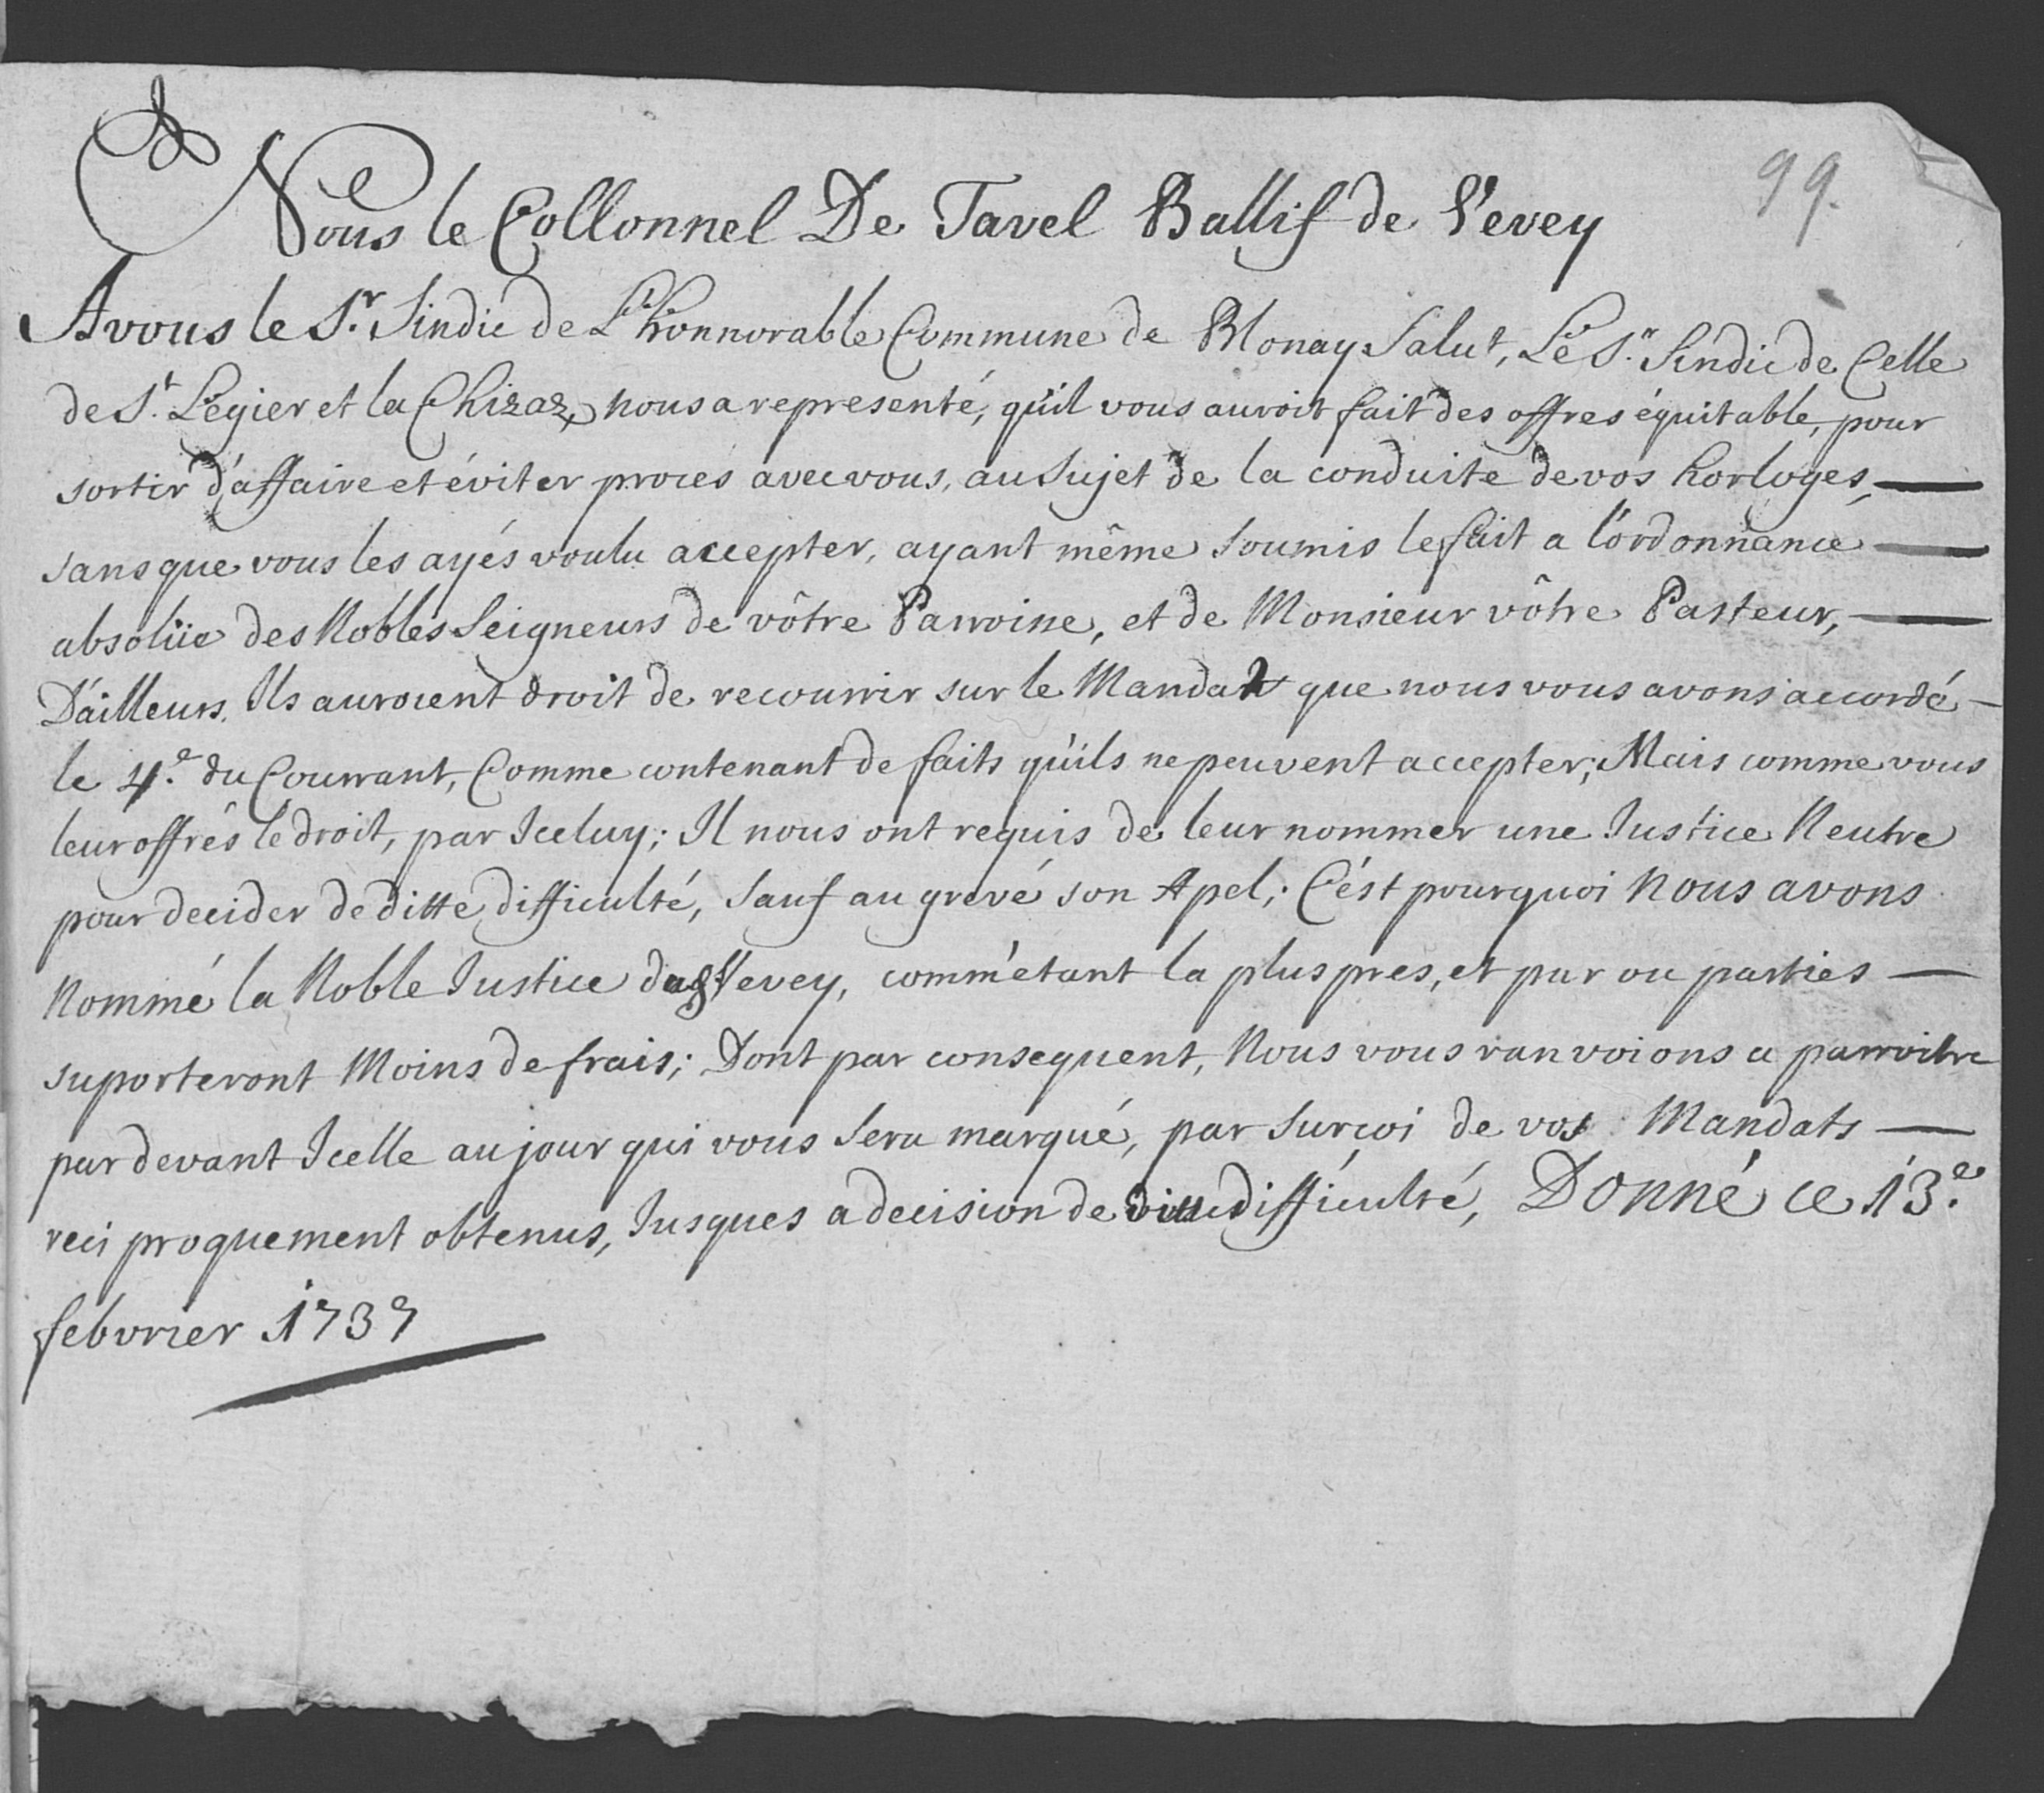 99.
Nous le Collonnel De Tavel Ballif de Vevey
A vous le S.r Sindic de L'honnorable Commune de Blonay Salut, Le S.r Sindic de Celle
de S.t Legier et la Chizaz, nous a representé, qu'il vous auroit fait des offres équitable, pour
sortir d'affaire et éviter proces avec vous, au sujet de la conduite de vos horloges,
sans que vous les ayés voulu accepter, ayant même soumis le fait a l'ordonnance
absolüe des Nobles Seigneurs de vôtre Parroisse, et de Monsieur vôtre Pasteur,
D'ailleurs, Ils auroient droit de recourrir sur le Mandat que nous vous avons accordé
le 4.e du Courrant, Comme contenant de faits qu'ils ne peuvent accepter; Mais comme vous
leur offrés le droit, par Iceluy; Il nous ont requis de leur nommer une Justice Neutre
pour decider de ditte difficulté, sauf au grevé son Apel; C'ést pourquoi Nous avons
Nommé la Noble Justice de Vevey, comm'étant la plus pres, et par ou parties
suporteront Moins de frais; Dont par consequent, Nous vous ranvoions a parroitre
par devant Icelle au jour qui vous sera marqué, par surcoi de vos Mandats
reciproquement obtenus, Jusques a decision de ditte difficulté, Donné ce 13.e
febvrier 1737